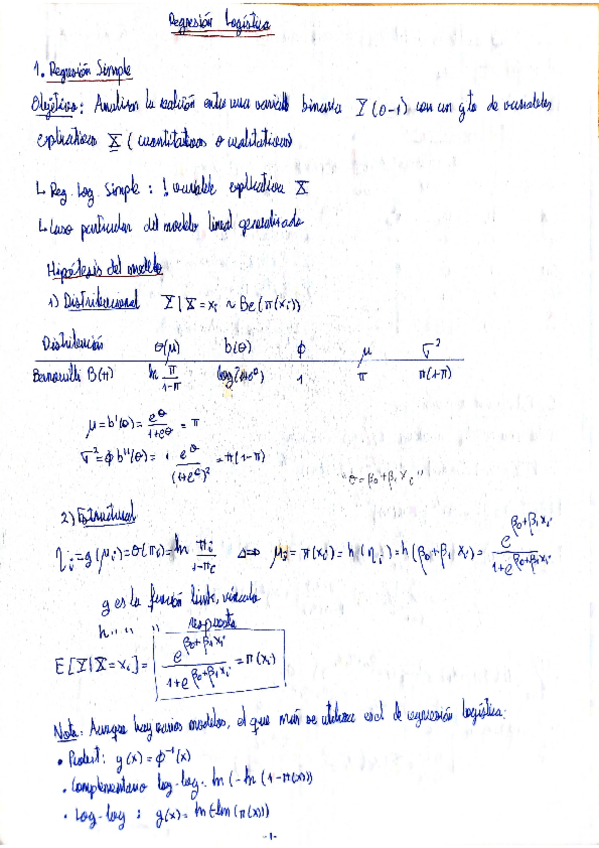 Regresión Logística
1. Regresión Simple
Objetivo: Analizar la relación entre una variable binaria Y (0-1) con un gto de variables
explicativas X (cuantitativas o cualitativas)
↳ Reg. Log. Simple: 1 variable explicativa X
↳ Caso particular del modelo lineal generalizada
Hipótesis del modelo
1) Distribucional Y|X=xᵢ ~ Be(π(xᵢ))
Distribución θ(μ) b(θ) ϕ μ σ²
Bernouilli B(π) ln π/(1-π) log(1+e^θ) 1 π π(1-π)
μ = b'(θ) = e^θ/(1+e^θ) = π
σ² = ϕ b''(θ) = 1 e^θ/(1+e^θ)² = π(1-π)
"θ = β₀+β₁xᵢ"
2) Estructural
ηᵢ = g(μᵢ) = θ(πᵢ) = ln πᵢ/(1-πᵢ) ⟺ μᵢ = π(xᵢ) = h(ηᵢ) = h(β₀+β₁xᵢ) = e^(β₀+β₁xᵢ)/(1+e^(β₀+β₁xᵢ))
g es la función link, vínculo
h " " " respuesta
E[Y|X=xᵢ] = e^(β₀+β₁xᵢ)/(1+e^(β₀+β₁xᵢ)) = π(xᵢ)
Nota: Aunque hay varios modelos, el que más se utiliza es el de regresión logística:
• Probit: g(x) = ϕ⁻¹(x)
• Complementario log-log: ln(-ln(1-π(x)))
• Log-log: g(x) = ln(-ln(π(x)))
-1-